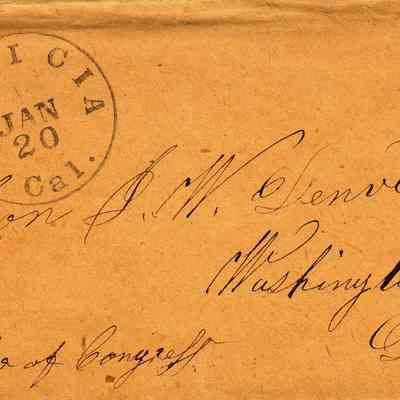 ICIA
JAN
20
Cal.
on J. W. Denve
Washingt
of Congress.